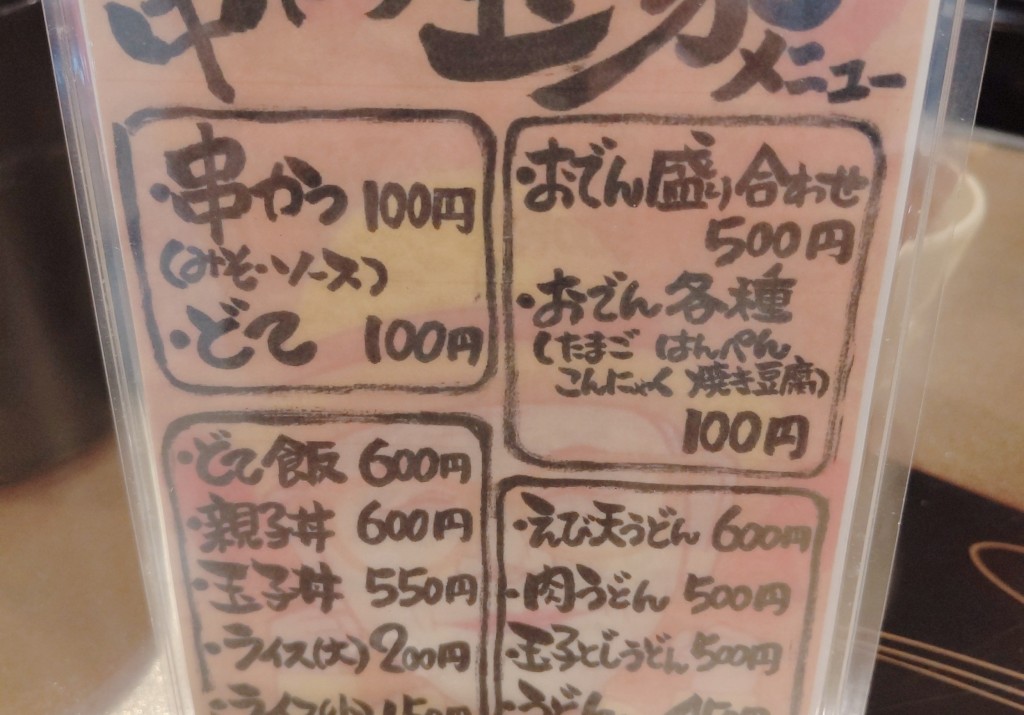 メニュー
・串かつ 100円
(みそ・ソース)
・どて 100円
・おでん盛り合わせ
500円
・おでん各種
(たまご はんぺん
こんにゃく 焼き豆腐)
100円
・どて飯 600円
・親子丼 600円
・玉子丼 550円
・ライス(大) 200円
・ライス(小) 150円
・えび天うどん 600円
・肉うどん 500円
・玉子とじうどん 500円
・うどん 450円